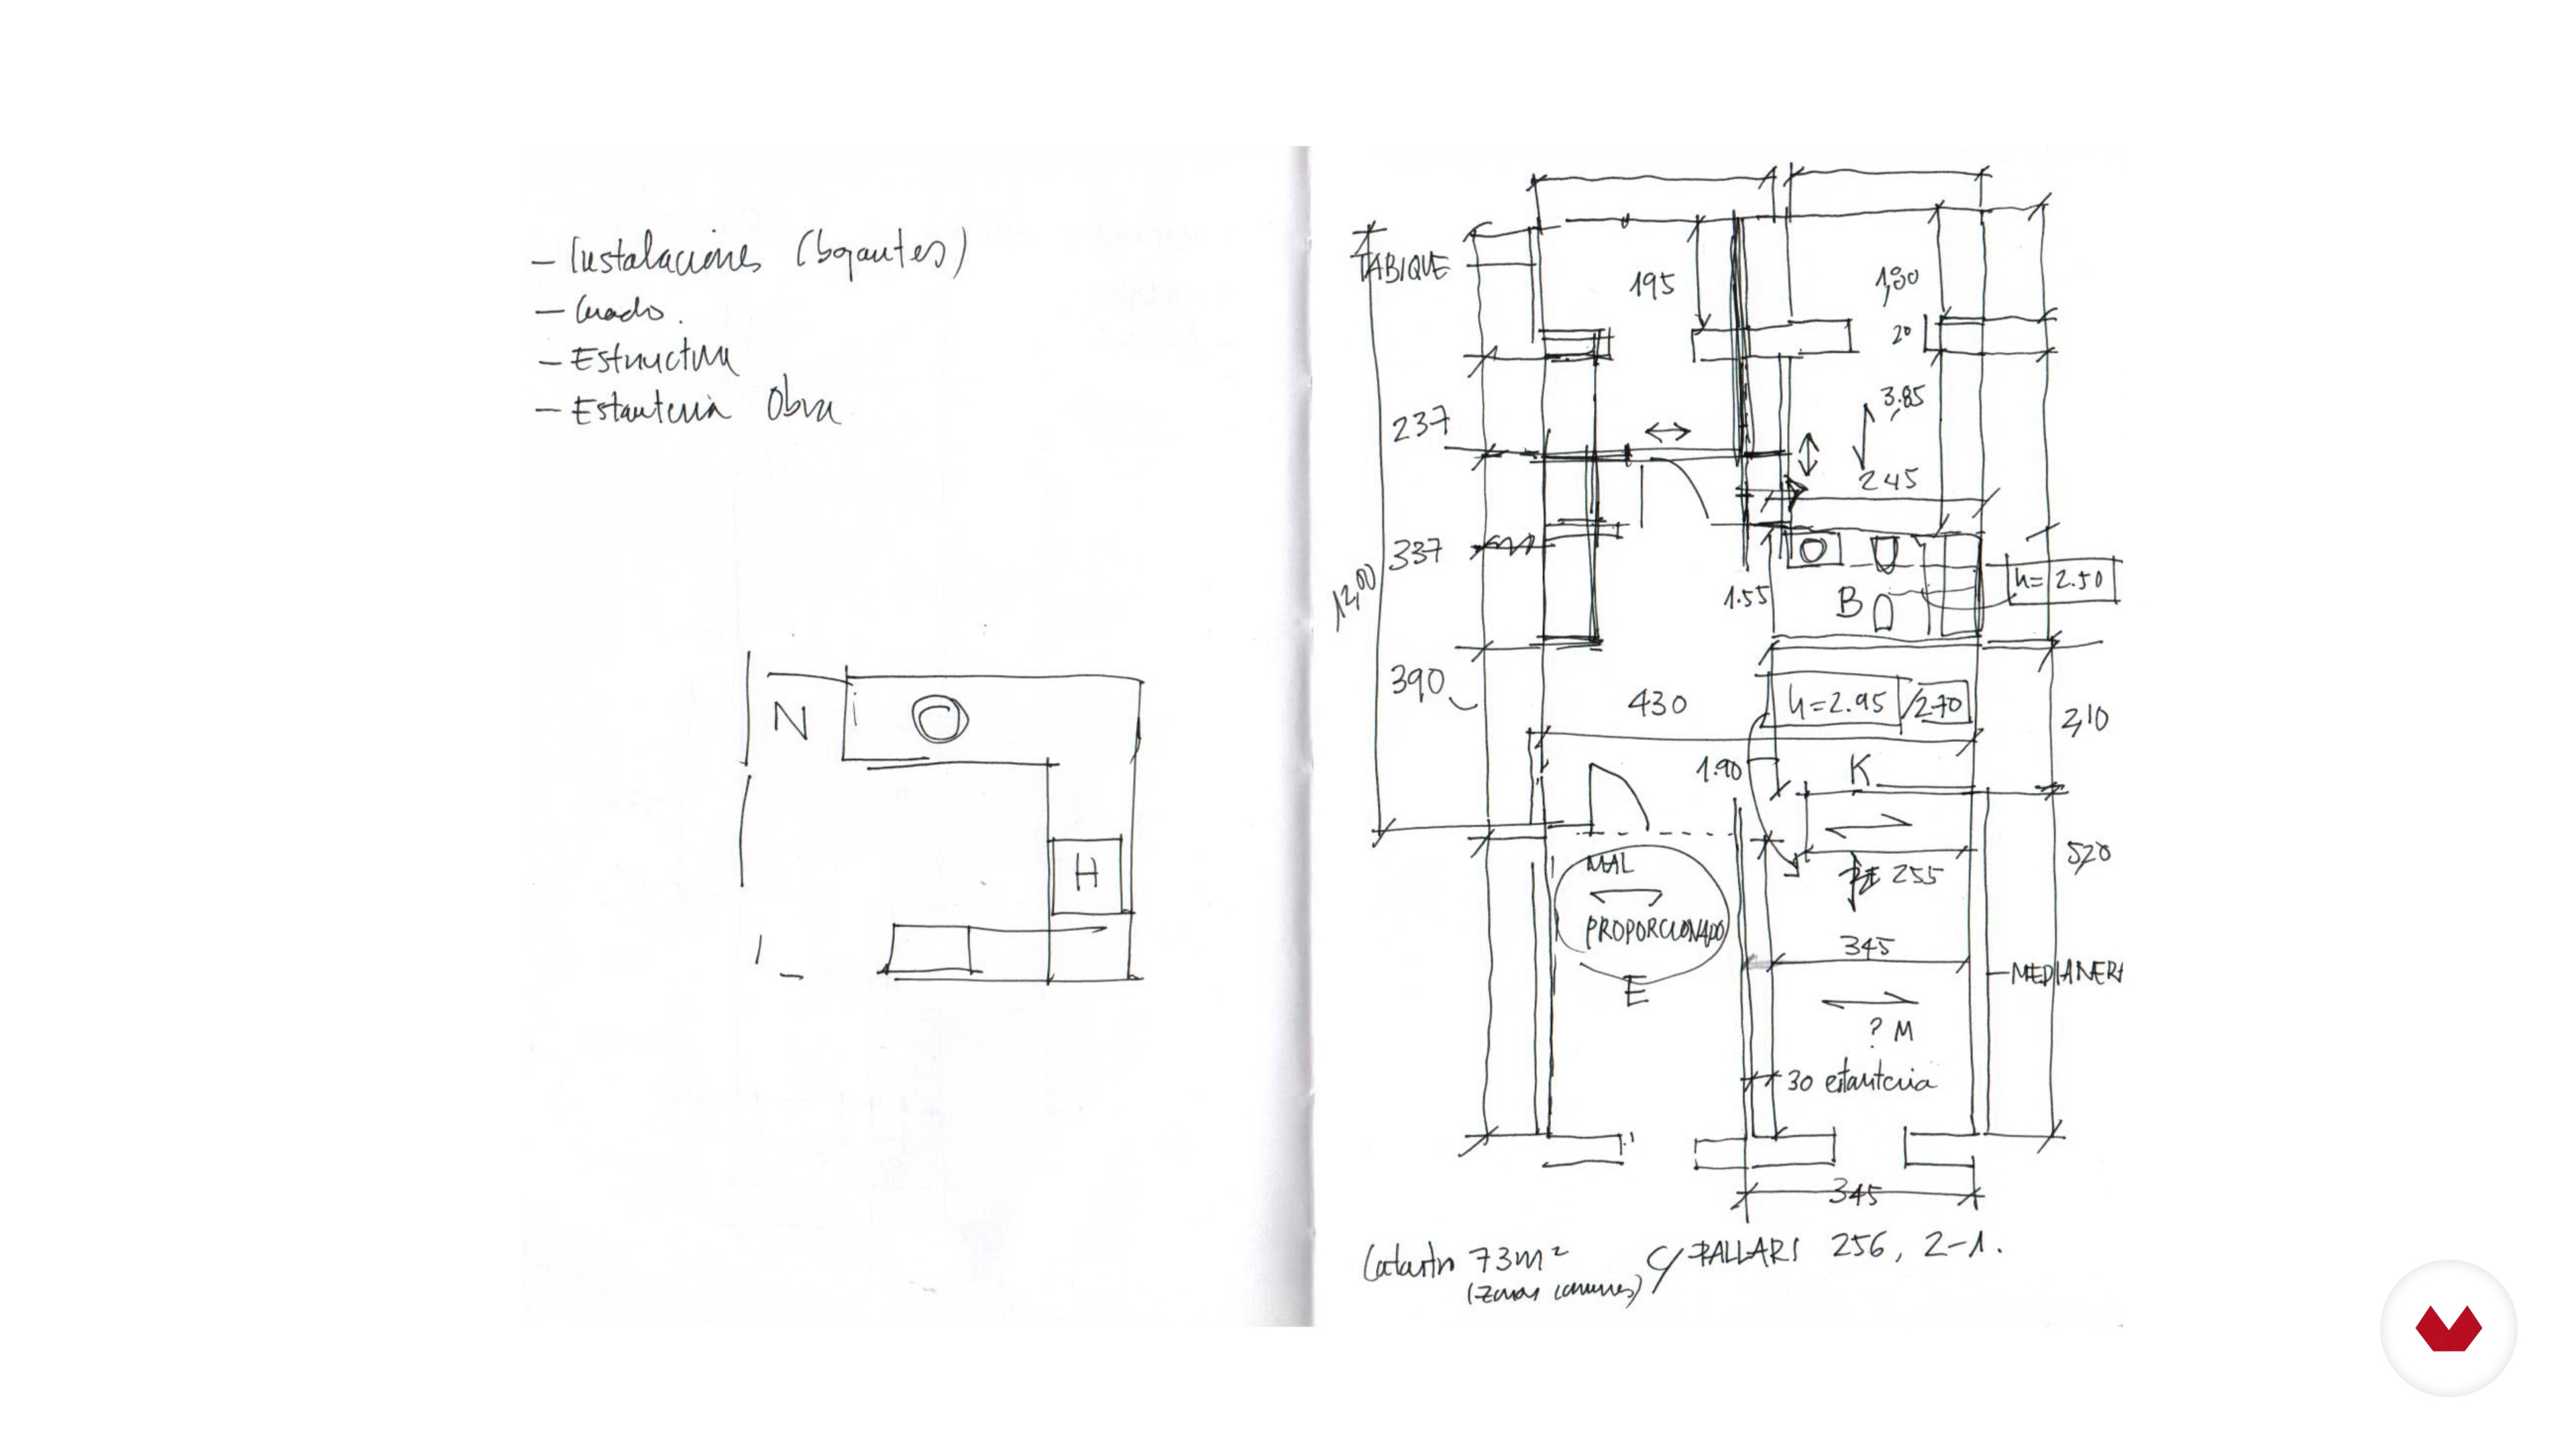 - Instalaciones (bajantes)
- Estructura
- Estanteria Obra
N
H
TABIQUE
195
1,80
20
237
3.85
245
337
12,00
1.55
B
h= 2.50
390
430
h=2.95 /2.70
2,10
1.90
K
520
MAL
PROPORCIONADO
255
345
E
MEDIANERA
? M
30 estanteria
345
Catastro 73m² C/ PALLARS 256, 2-1.
(zonas comunes)